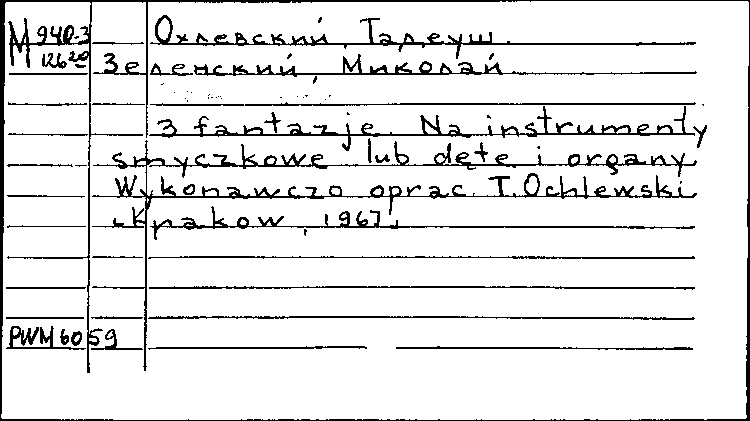 М 940-3
Охлевский, Тадеуш.
Зеленский, Миколай
3 fantazje. Na instrumenty
smyczkowe lub dęte i organy.
Wykonawczo oprac. T. Ochlewski
Krakow, 1967.
PWM 6059